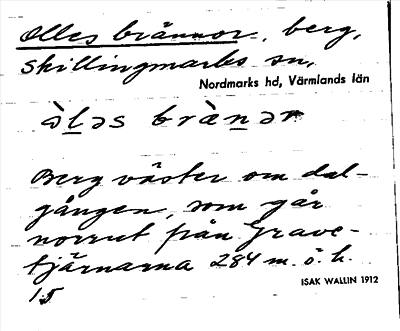 Olles brännor, berg,
Skillingmarks sn,
Nordmarks hd, Värmlands län
òlǝs brànǝr
Berg väster om dal-
gången, som går
norrut från Grave-
tjärnarna 284 m. ö. h.
ISAK WALLIN 1912
15